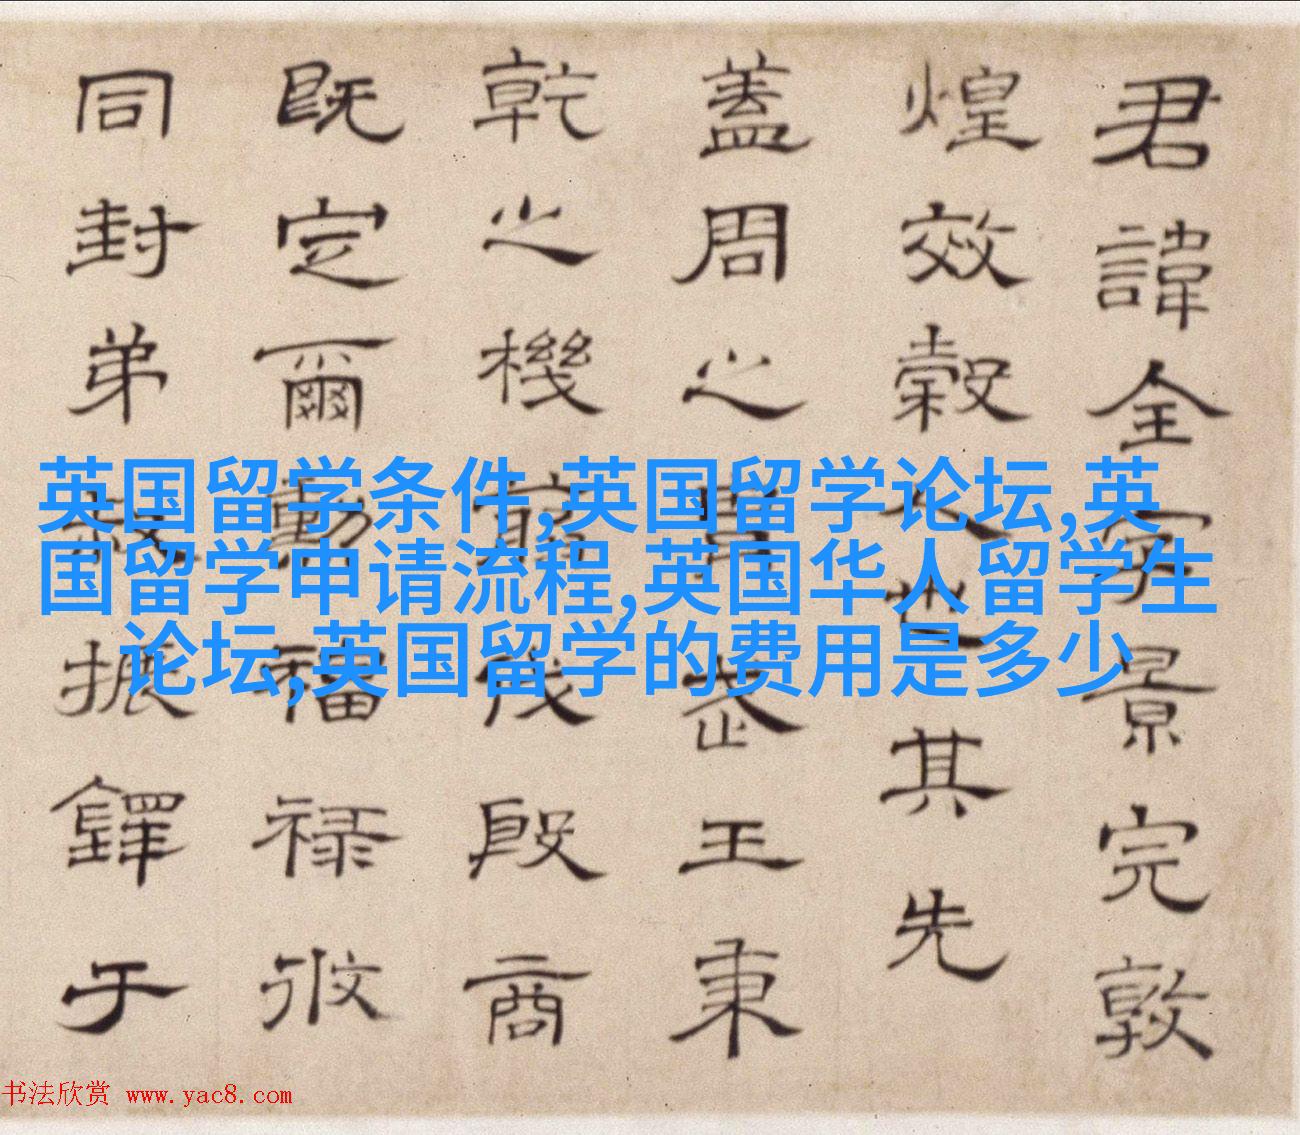 君諱全字景完敦
煌效穀人也其先
蓋周之胄武王秉
乾之機翦伐殷商
既定爾勳福禄攸
同封弟叔振鐸于
英国留学条件,英国留学论坛,英
国留学申请流程,英国华人留学生
论坛,英国留学的费用是多少
书法欣赏 www.yac8.com